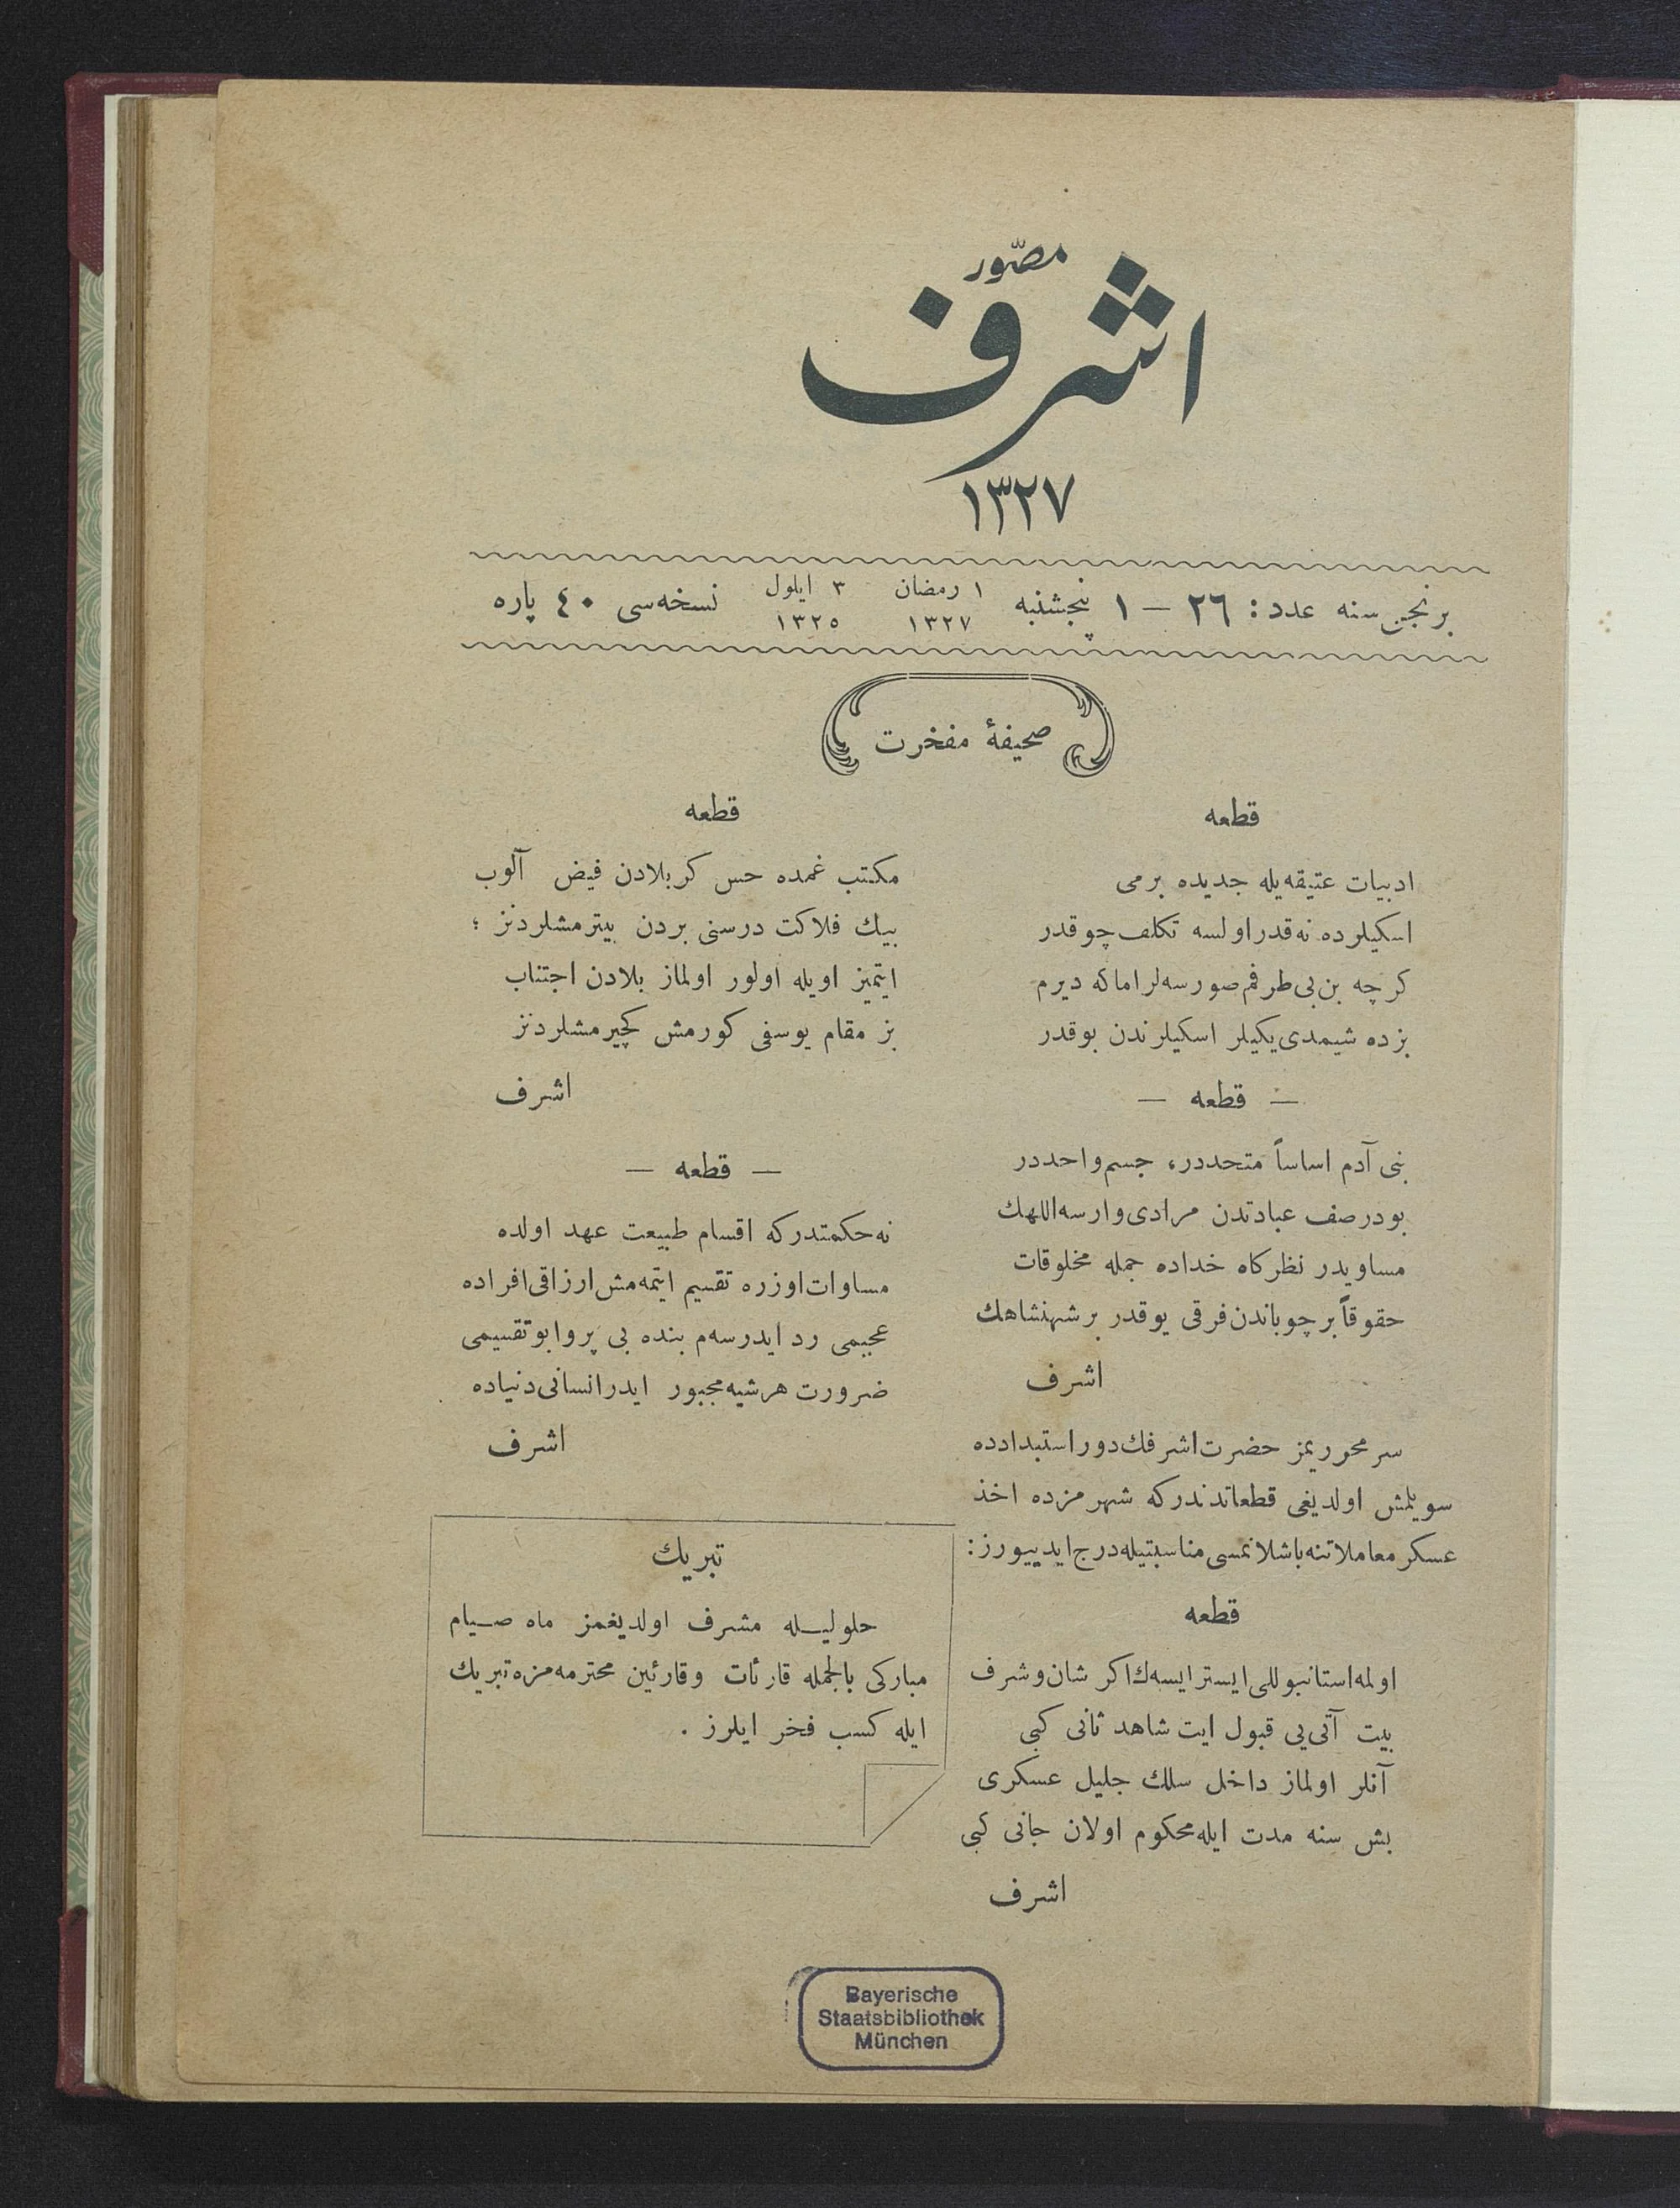 مصوّر
اشرف
١٣٢٧
برنجی سنه عدد : ٢٦ — ١ پنجشنبه ١ رمضان ١٣٢٧ ٣ ایلول ١٣٢٥ نسخه‌سی ٤٠ پاره
صحیفهٔ مفخرت
قطعه
ادبیات عتیقه‌یله جدیده برمی
اسکیلرده نه‌قدر اولسه تکلف چوقدر
کرچه بن بی‌طرفم صورسه‌لر اما که دیرم
بزده شیمدی یکیلر اسکیلرندن بوقدر
— قطعه —
بنی آدم اساساً متحددر، جسم واحددر
بودر صف عبادتدن مرادی وارسه اللهك
مساویدر نظرکاه خداده جمله مخلوقات
حقوقاً بر چوباندن فرقی یوقدر بر شهنشاهك
اشرف
سر محرریمز حضرت اشرفك دور استبدادده
سویلمش اولدیغی قطعاتدندرکه شهرمزده اخذ
عسکر معاملاتنه باشلانمسی مناسبتیله درج ایدییورز :
قطعه
اولمه استانبوللی ایستر ایسه‌ك اکر شان و شرف
بیت آتی‌یی قبول ایت شاهد ثانی کبی
آنلر اولماز داخل سلك جلیل عسکری
بش سنه مدت ایله محکوم اولان جانی کبی
اشرف
قطعه
مکتب غمده حس کربلادن فیض آلوب
بیك فلاکت درسنی بردن بیترمشلردنز ؛
ایتمیز اویله اولور اولماز بلادن اجتناب
بز مقام یوسفی کورمش کچیرمشلردنز
اشرف
— قطعه —
نه حکمتدرکه اقسام طبیعت عهد اولده
مساوات اوزره تقسیم ایتمه‌مش ارزاقی افراده
عجبمی رد ایدرسه‌م بنده بی پروا بو تقسیمی
ضرورت هر شیه مجبور ایدر انسانی دنیاده
اشرف
تبریك
حلولیله مشرف اولدیغمز ماه صیام
مبارکی بالجمله قارئات وقارئین محترمه‌مزه تبریك
ایله کسب فخر ایلرز .
Bayerische
Staatsbibliothek
München